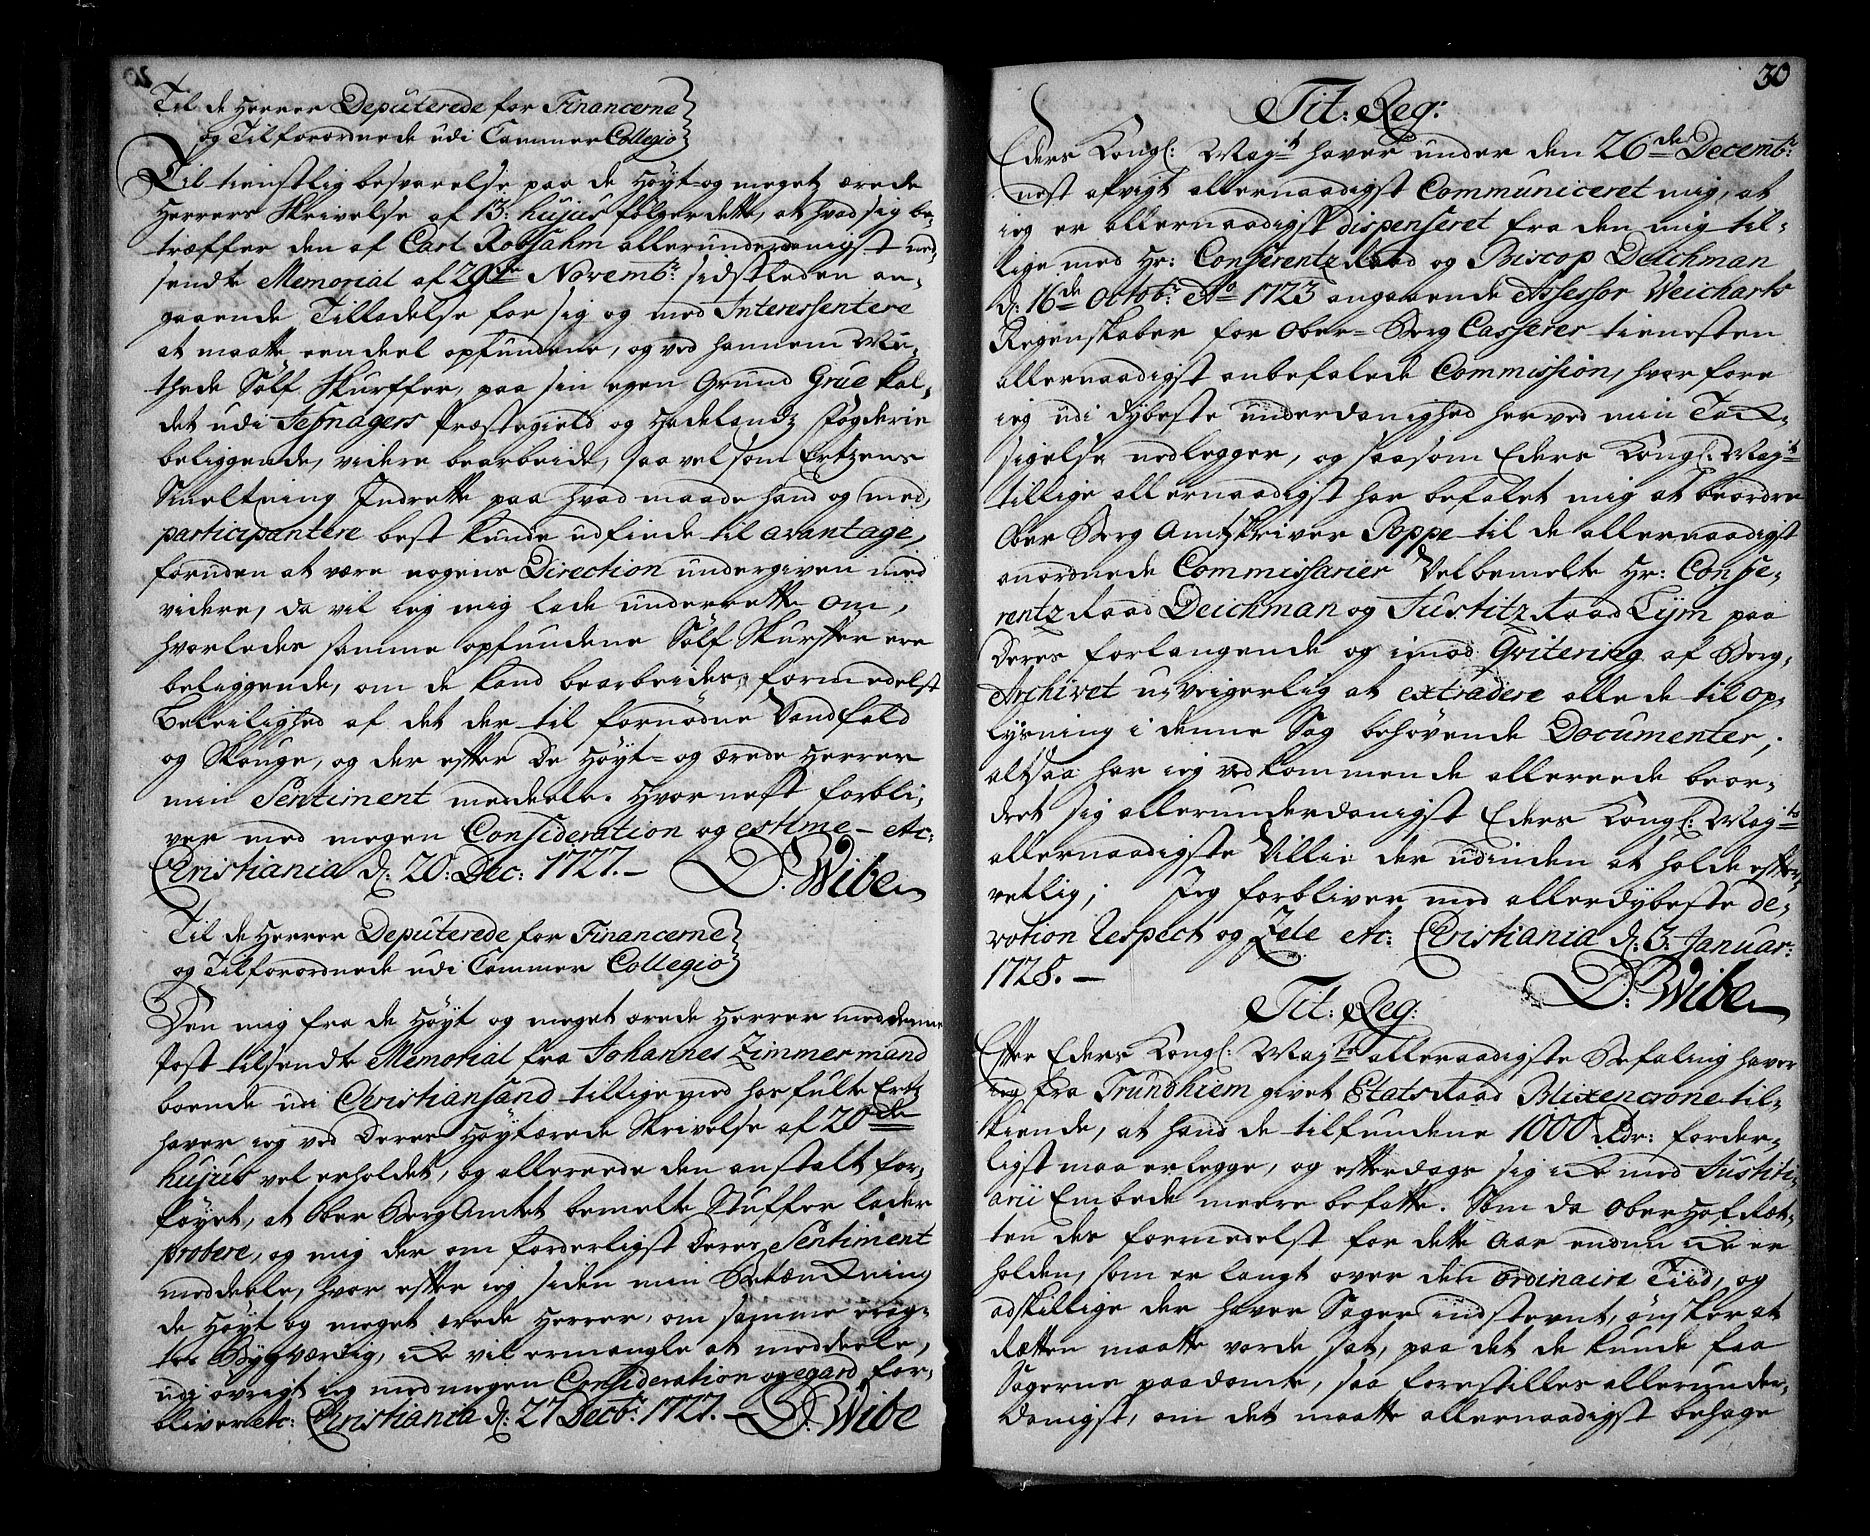 Til de Herrer Deputerede for Financerne
og Tilforordnede udi Cammer Collegio
Til tienstlig besvarelse paa de Höyt- og meget ærede
Herrers Skrivelse af 13: hujus følger dette, at hvad sig be-
træffer den af Carl Robsahm allerunderdanigst ned-
sendte Memorial af 29de Novembr: sidstleden an-
gaaende Tilladelse for sig og med Interessentere
at maatte eendeel opfundene, og ved hannem Mu-
thede Sølf Skurffer, paa sin egen Grund Grue kal-
det udi Jefnagers Præstegield og Hadelandz Fogderie
beliggende, videre bearbeide, saavelsom Ertzens
Smeltning Indrette paa hvad maade hand og med
participantere best kunde udfinde til avantage,
foruden at være nogens Direction undergiven med
videre, da vil ieg mig lade underrette om,
hvorledes samme opfundene Sølf Skurffer ere
beliggende, om de kand bearbeides, formedelst
Beleilighed af det der til fornødne Vandfald
og Skouge, og der efter De Höyt- og ærede Herrer
min Sentiment meddeele. Hvor nest forbli-
ver med megen Consideration og estime - etc:
Christiania d: 20: Dec: 1727. - D: Wibe
Til de Herrer Deputerede for Financerne
og Tilforordnede udi Cammer Collegio
Den mig fra de Höyt og meget ærede Herrer med denne
Post tilsendte Memorial fra Johannes Zimmermand
boende udi Christiansand tillige med hosfulte Ertz
haver ieg ved Deres Höytærede Skrivelse af 20de
hujus vel erholdet, og allereede den anstalt for-
føyet, at Ober Berg Amtet bemelte Stuffer lader
probere, og mig der om forderligst Deres Sentiment
meddeele, hvor efter ieg siden min Betænkning
de Höyt og meget ærede Herrer, om samme erag-
tes Bygværdig, icke vil ermangle at meddeele,
udi øvrigt ieg med megen Consideration og egard for-
bliver etc: Christiania d: 27 Decbr: 1727. - D: Wibe
30
Tit: Reg:
Eders Kongl: Mayt haver under den 26de Decembr:
nest afvigt allernaadigst Communiceret mig, at
ieg er allernaadigst dispenseret fra den mig til-
lige med Hr: Conferentz Raad og Biscop Deichman
d: 16de Octobr: Ao 1723 angaaende Assessor Weicharts
Regenskaber for Ober-Berg Casserer tienesten
allernaadigst anbefalede Commission, hvorfore
ieg udi dybeste underdanighed herved min Tack-
sigelse nedlegger, og saasom Eders Kongl: Mayt
tillige allernaadigst har befalet mig at beordre
Ober Berg Amtskriver Poppe til de allernaadigst
anordnede Commissarier Velbemelte Hr: Confe-
rentz Raad Deichman og Justitz Raad Tÿm paa
Deres forlangende og imod Qvitering af Berg-
Archivet uveigerlig at extradere alle de til op-
lysning i denne Sag behøvende Documenter,
altsaa har ieg vedkommende allereede beor-
dret sig allerunderdanigst Eders Kongl: Mayts
allernaadigste Villie der udinden at holde efter-
rettlig; Jeg forbliver med allerdybeste de-
votion Respect og Zele etc: Christiania d: 3. Januar:
1728. -
D: Wibe
Tit: Reg:
Efter Eders Kongl: Mayts allernaadigste Befaling haver
ieg fra Trundhiem givet Etats Raad Blixencrone til-
kiende, at hand de tilfundene 1000 Rdr: forder-
ligst maa erlegge, og efterdags sig icke med Justiti-
arii Embede meere befatte. Som da Ober Hof Ræt-
ten der formedelst for dette Aar endnu icke er
holden, som er langt over den ordinaire Tiid, og
adskillige der haver Sager indstevnt, ønsker at
Rætten maatte vorde sat, paa det de kunde faa
Sagerne paadømte, saa forestilles allerunder-
danigst, om det maatte allernaadigst behage